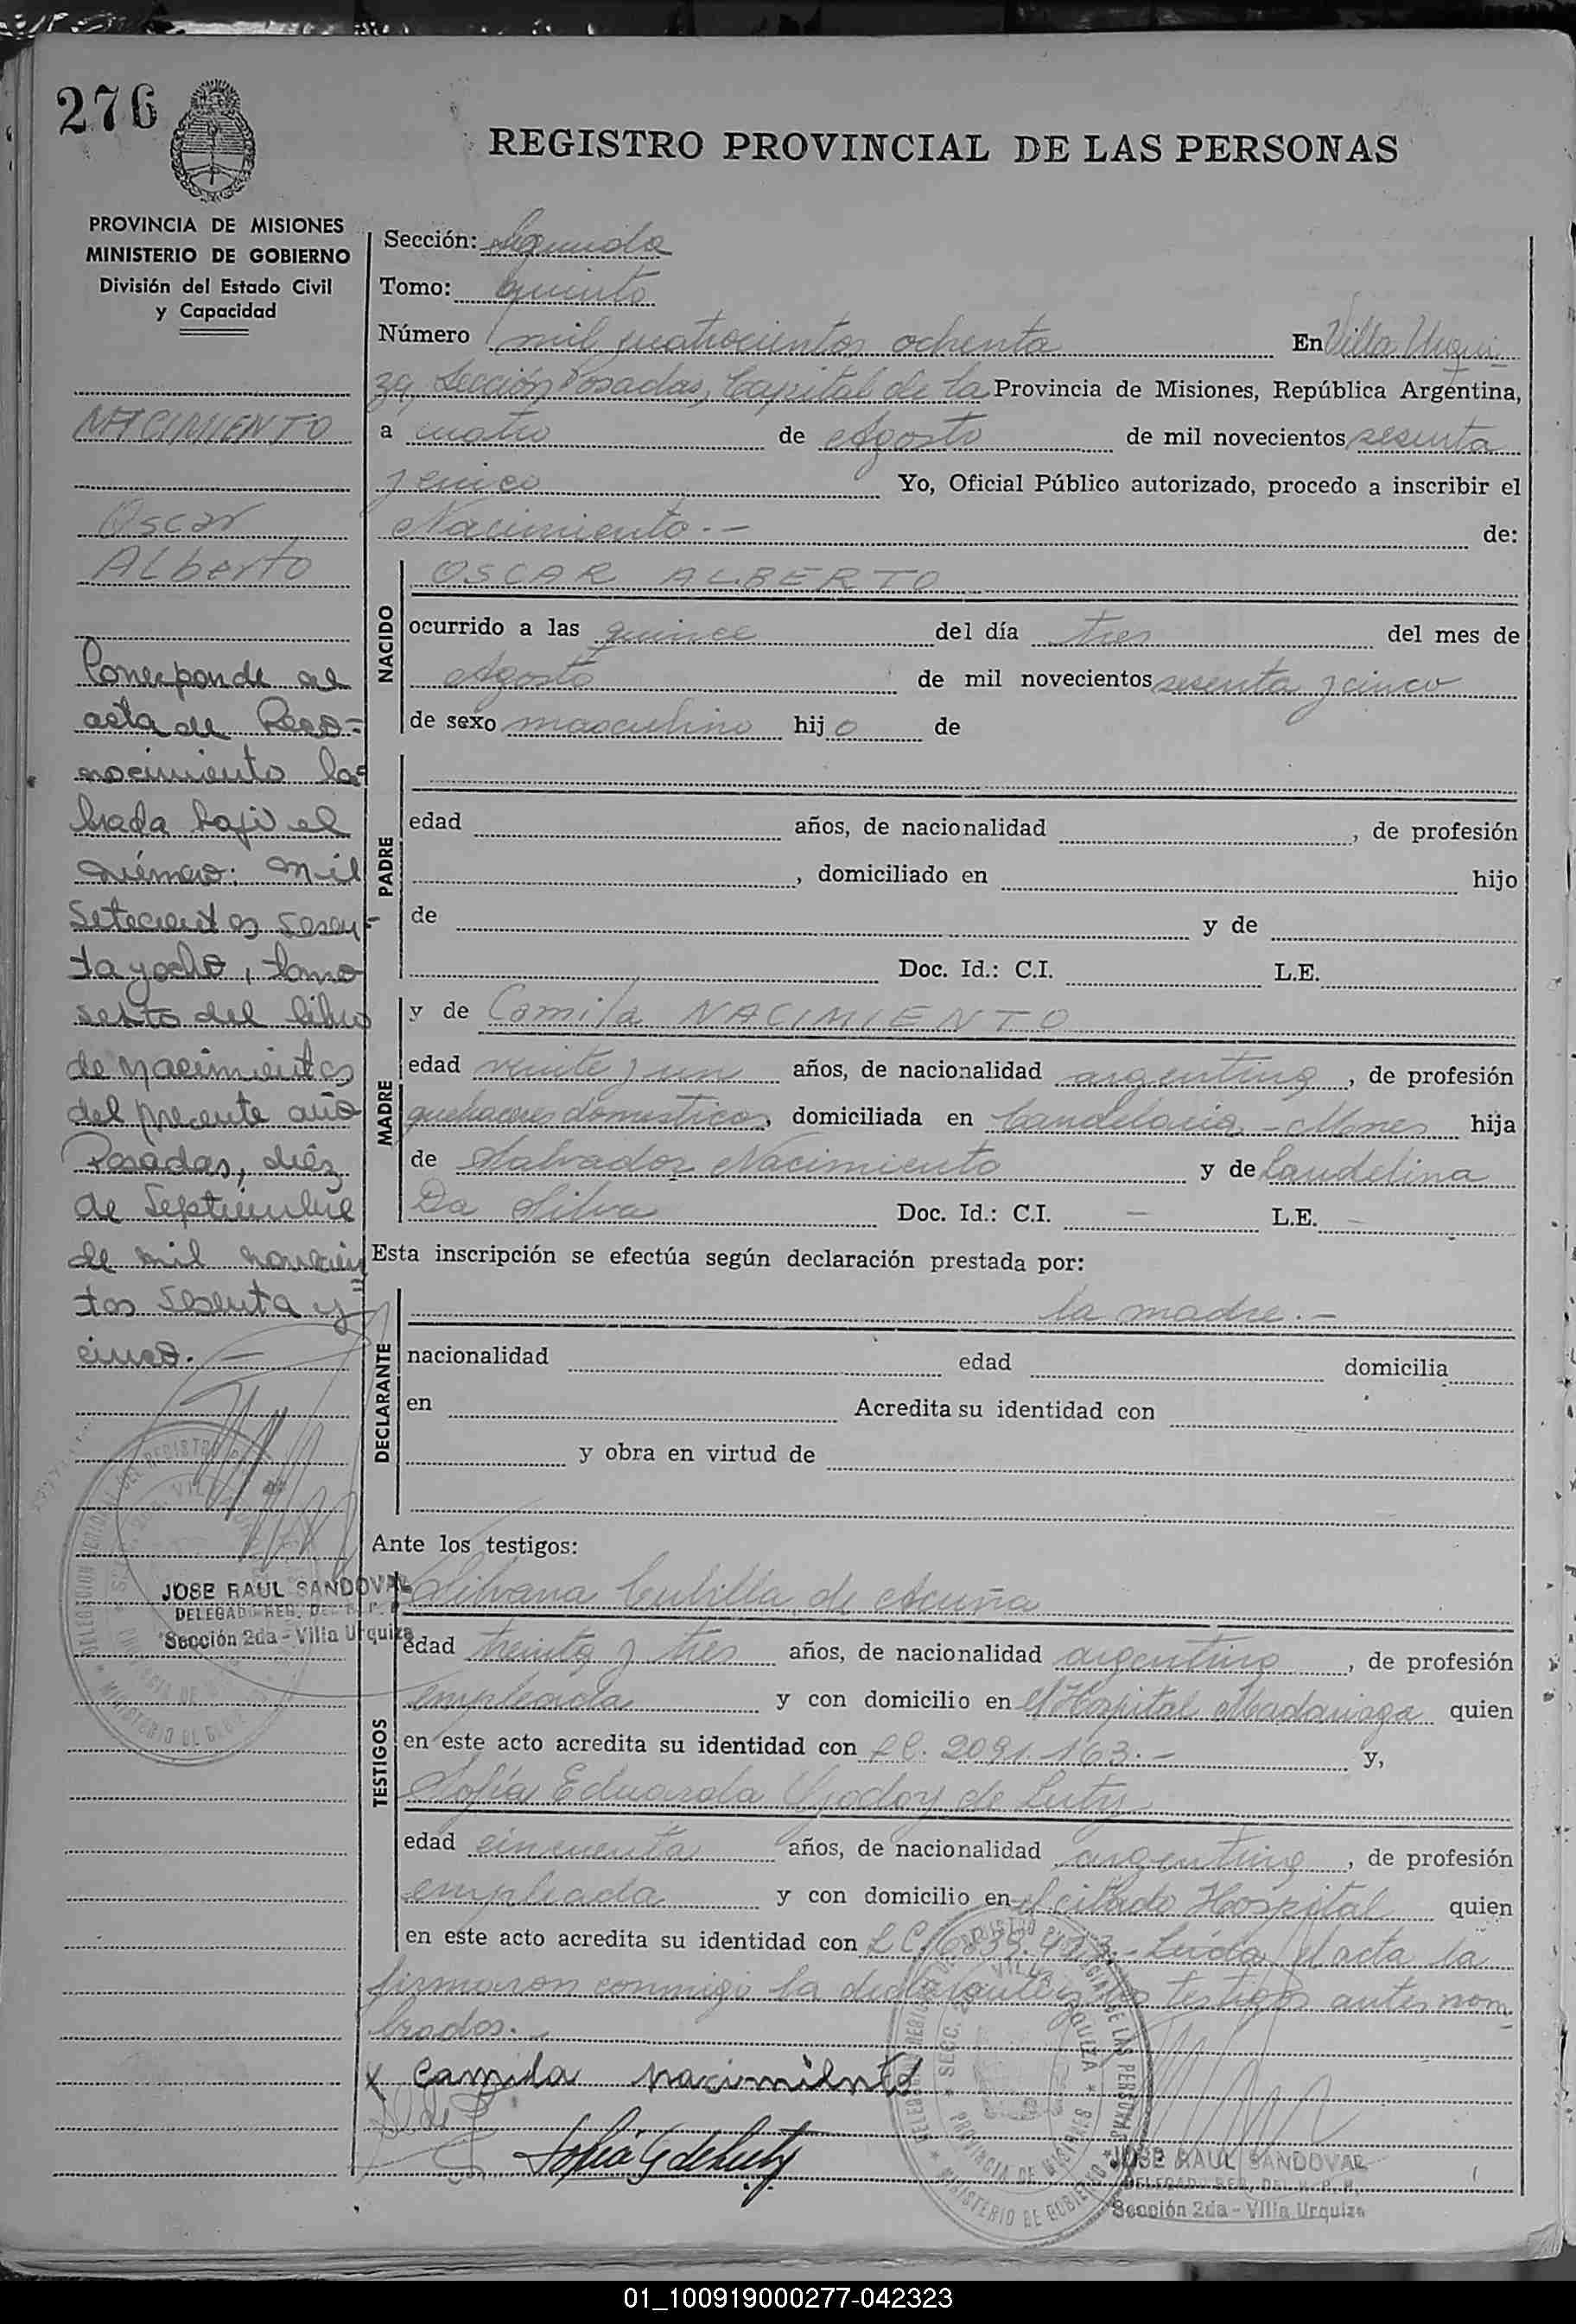 276
REGISTRO PROVINCIAL DE LAS PERSONAS
PROVINCIA DE MISIONES
MINISTERIO DE GOBIERNO
División del Estado Civil
y Capacidad
NACIMIENTO
Oscar
Alberto
Corresponde al
acta de Reco-
nocimiento la-
brada bajo el
número: mil
setecientos sesen-
ta y ocho, tomo
sexto del libro
de nacimientos
del presente año
Posadas, diez
de Septiembre
de mil novecien
tos sesenta y
cinco. -
JOSE RAUL SANDOVAL
DELEGADO REG. DEL R. P. P.
Sección 2da - Villa Urquiza
Sección: Segunda
Tomo: quinto
Número mil cuatrocientos ochenta En Villa Urqui
za, Sección Posadas, Capital de la Provincia de Misiones, República Argentina,
a cuatro de Agosto de mil novecientos sesenta
y cinco Yo, Oficial Público autorizado, procedo a inscribir el
Nacimiento.- de:
NACIDO
OSCAR ALBERTO
ocurrido a las quince del día tres del mes de
Agosto de mil novecientos sesenta y cinco
de sexo masculino hijo de
PADRE
edad años, de nacionalidad , de profesión
, domiciliado en hijo
de y de
Doc. Id.: C.I. L.E.
MADRE
y de Camila NACIMIENTO
edad veinte y un años, de nacionalidad argentina, de profesión
quehaceres domesticos, domiciliada en Candelaria - Mnes hija
de Salvador Nacimiento y de Laudelina
Da Silva Doc. Id.: C.I. - L.E. -
Esta inscripción se efectúa según declaración prestada por:
DECLARANTE
la madre.-
nacionalidad edad domicilia
en Acredita su identidad con
y obra en virtud de
Ante los testigos:
TESTIGOS
Silvana Cubilla de Acuña
edad treinta y tres años, de nacionalidad argentina, de profesión
empleada y con domicilio en el Hospital Madariaga quien
en este acto acredita su identidad con L.C. 2091.163.- y,
Sofía Eduarda Godoy de Luty
edad cincuenta años, de nacionalidad argentina, de profesión
empleada y con domicilio en el citado Hospital quien
en este acto acredita su identidad con L.C. - Leída el acta la
firmaron conmigo la declarante y los testigos antes nom
brados.-
x camila nacimiento
Sofia G de Luty
DELEGACION REGISTRO PROVINCIAL DE LAS PERSONAS
SECC. 2da. VILLA URQUIZA
PROVINCIA DE MISIONES
MINISTERIO DE GOBIERNO
JOSE RAUL SANDOVAL
DELEGADO REG. DEL R. P. P.
Sección 2da - Villa Urquiza
01_100919000277-042323